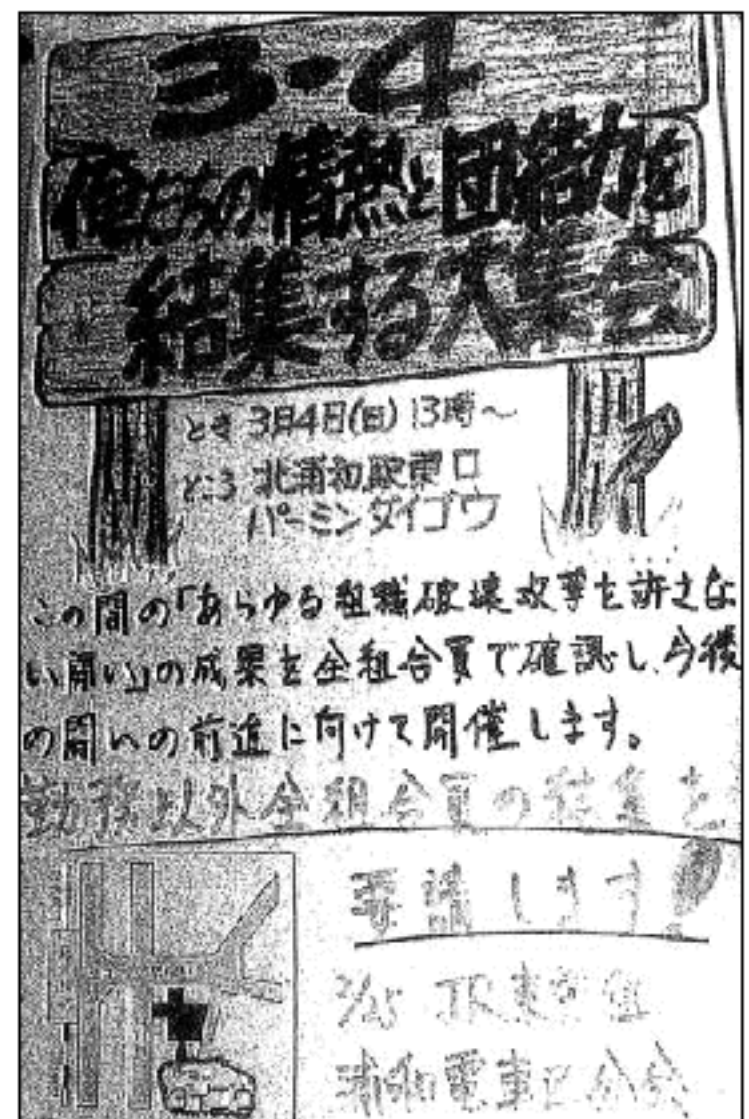 3・4
俺たちの情熱と団結力を
結集する大集会
とき 3月4日(日) 13時～
ところ 北浦和駅東口
パーミンダイゴウ
この間の「あらゆる組織破壊攻撃を許さな
い闘い」の成果を全組合員で確認し、今後
の闘いの前進に向けて開催します。
勤務以外全組合員の結集を
要請します!
2/25 JR東労組
浦和電車区分会